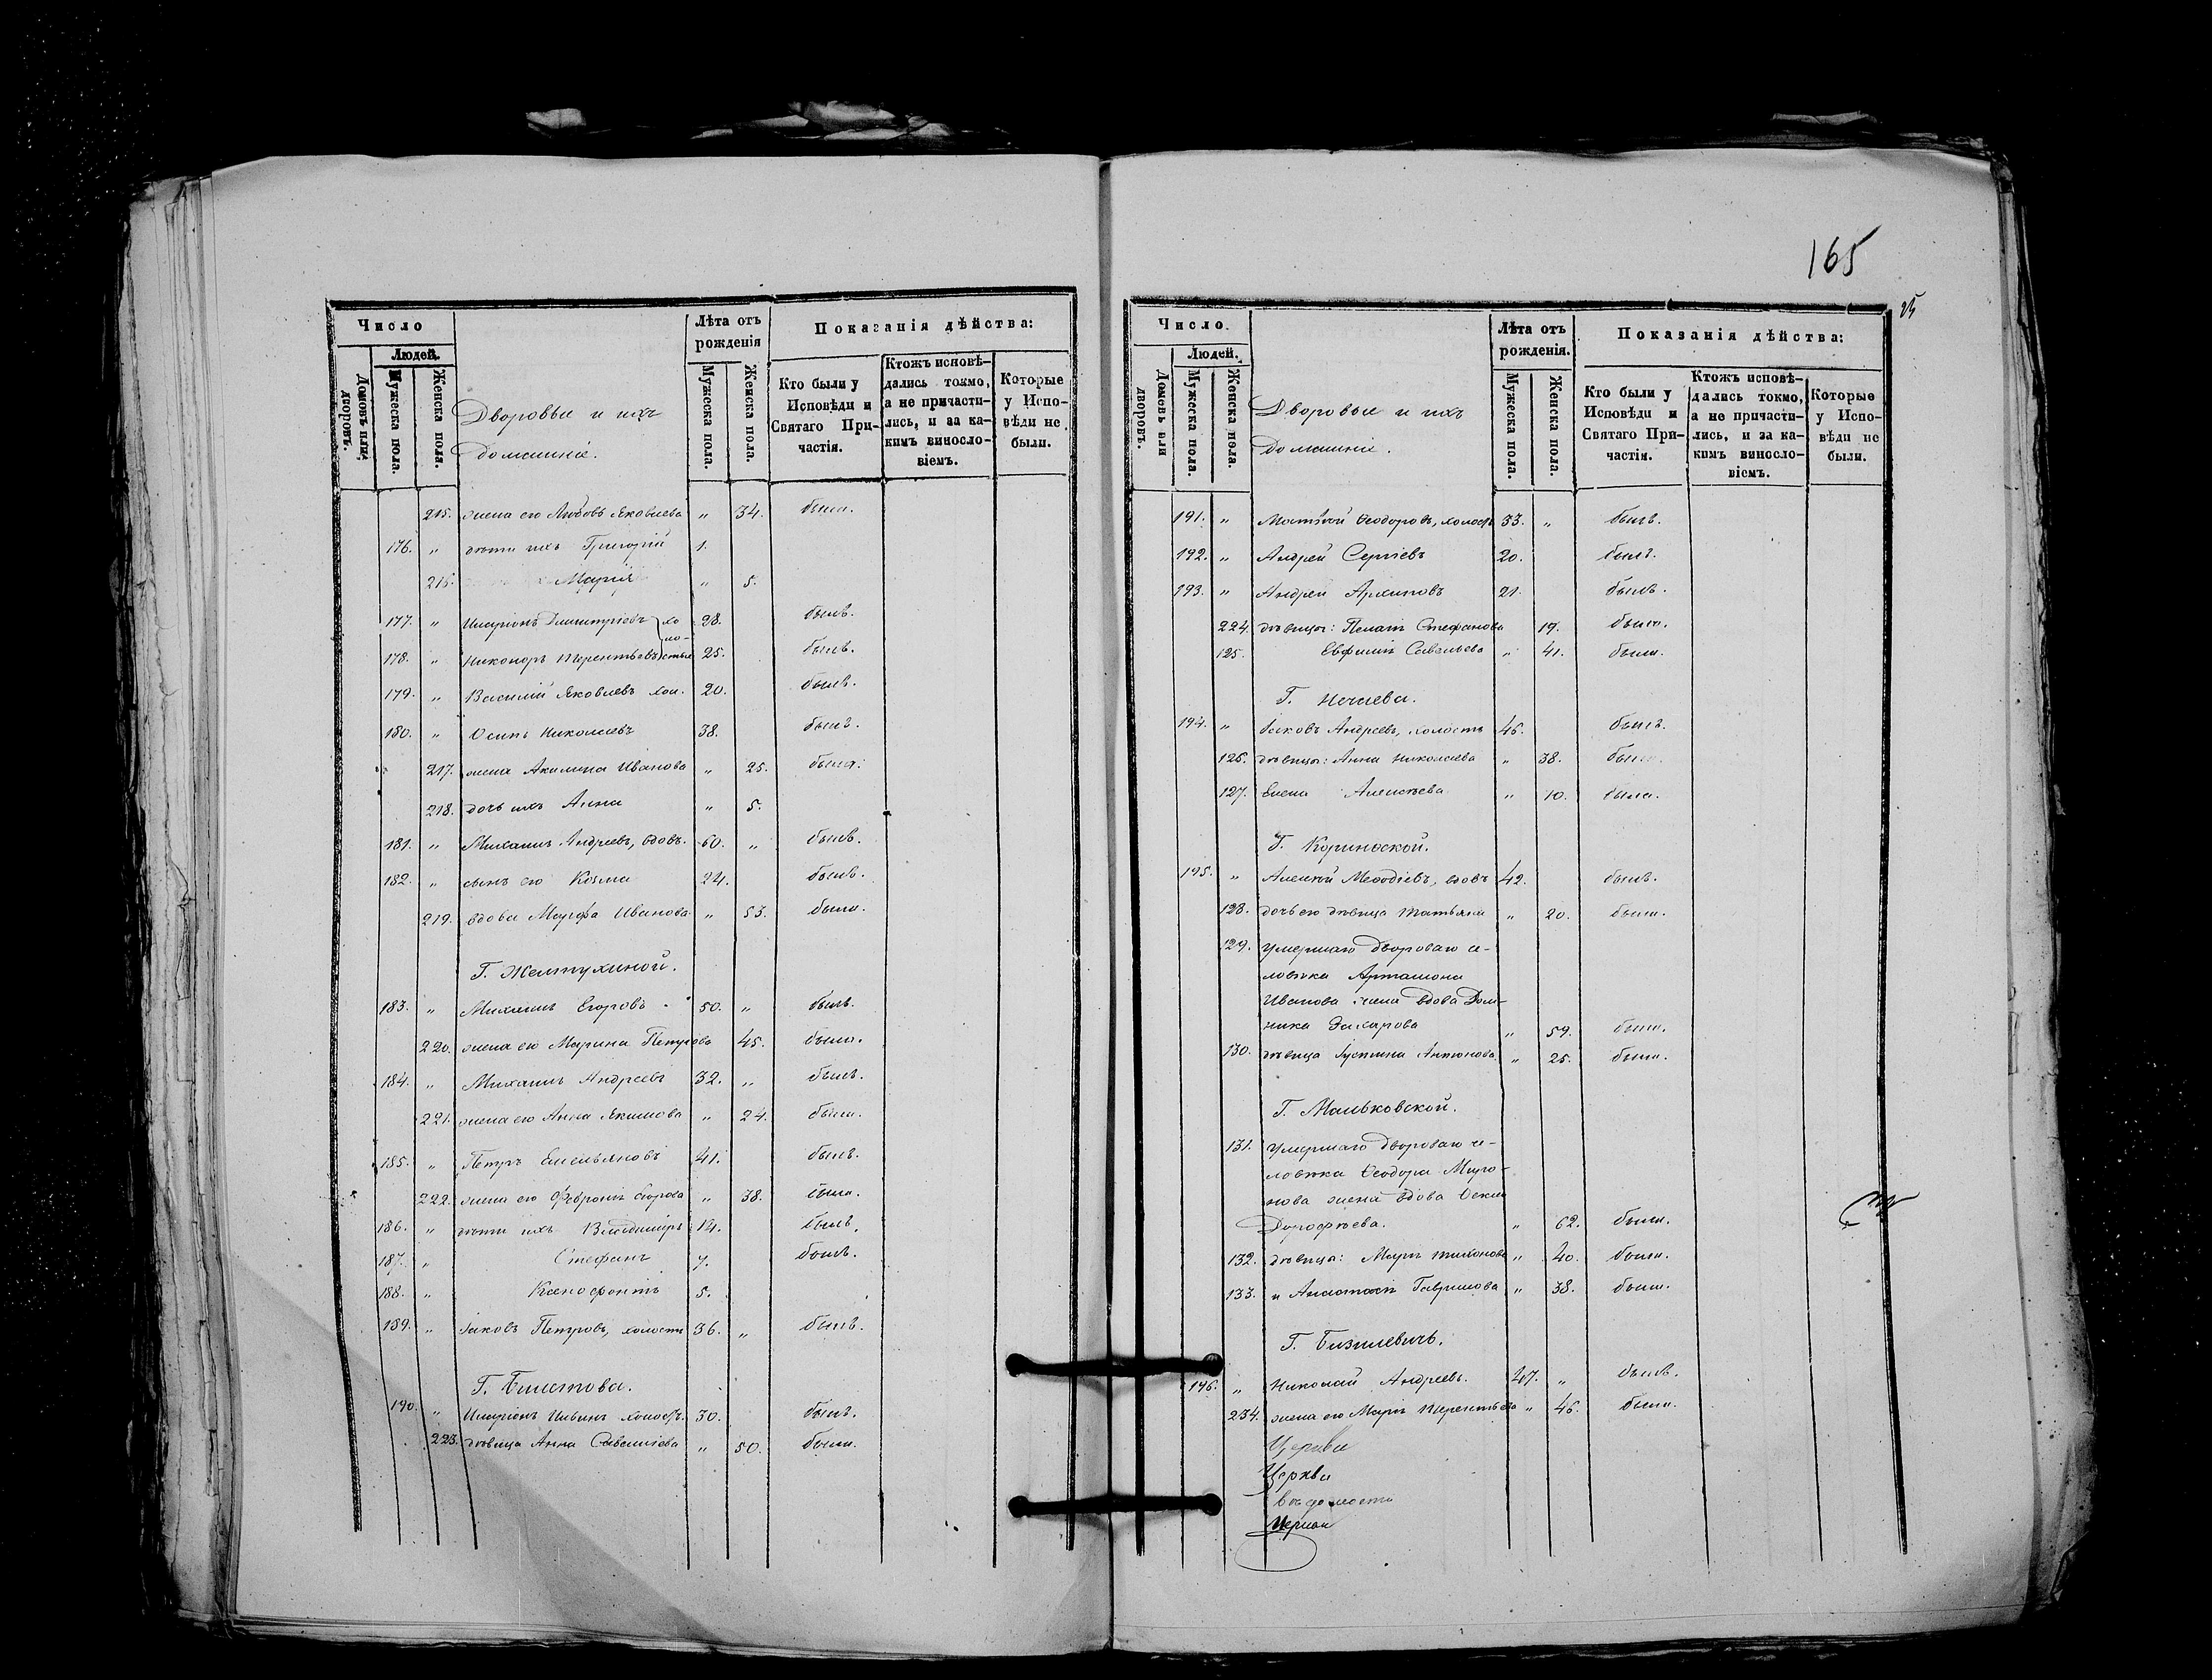 Число
Людей.
Домовъ или дворовъ.
Мужеска пола.
Женска пола.
Дворовые и ихъ
домашніе.
Лѣта отъ рожденія
Мужеска пола.
Женска пола.
Показанія дѣйства:
Кто были у Исповѣди и Святаго Причастія.
Ктожъ исповѣдались токмо, а не причастились, и за какимъ винословіемъ.
Которые у Исповѣди не были.
215. жена его Любовь Яковлева " 34. была.
176. " дѣти ихъ Григорій 1.
216. Марія " 5.
177. " Иларіонъ Димитріевъ хо 28. былъ.
178. " Никоноръ Терентьевъ лостые 25. былъ.
179. " Василій Яковлевъ хол. 20. былъ.
180. " Осипъ Николаевъ 38. былъ.
217. жена Акилина Иванова " 25. была.
218. дочь ихъ Анна " 5.
181. " Михаилъ Андреевъ, вдовъ. 60. " былъ.
182. " сынъ его Козма 24. былъ.
219. вдова Марфа Иванова " 53. была.
Г. Желтухиной.
183. " Михаилъ Егоровъ 50. " былъ.
220. жена его Марина Петрова 45. была.
184. " Михаилъ Андреевъ 32. " былъ.
221. жена его Анна Якимова " 24. была.
185. " Петръ Емельяновъ 41. былъ.
222. жена его Февронія Егорова " 38. была.
186. " дѣти ихъ Владимиръ 14. былъ.
187. " Стефанъ 7. былъ.
188. " Ксенофонтъ 5.
189. " Іаковъ Петровъ, холостъ 36. " былъ.
Г. Болотова.
190. " Иларіонъ Ильинъ холостъ. 30. былъ.
223. дѣвица Анна Савельева " 50. была.
165
Число.
Людей.
Домовъ или дворовъ.
Мужеска пола.
Женска пола.
Дворовые и ихъ
домашніе.
Лѣта отъ рожденія.
Мужеска пола.
Женска пола.
Показанія дѣйства:
Кто были у Исповѣди и Святаго Причастія.
Ктожъ исповѣдались токмо, а не причастились, и за какимъ винословіемъ.
Которые у Исповѣди не были.
191. " Матѳей Ѳеодоровъ, холостъ 33. " былъ.
192. " Андрей Сергіевъ 20. былъ.
193. " Андрей Архиповъ 21. былъ.
224. дѣвицы: Пелагія Стефанова 19. была.
125. Евфимія Савельева " 41. была.
Г. Нечаева.
194. " Іаковъ Андреевъ, холостъ 46. былъ.
126. дѣвицы: Анна Николаева " 38. была.
127. Елена Алексѣева " 10. была.
Г. Коринѳской.
195. " Алексѣй Меѳодіевъ, вдовъ 42. былъ.
128. дочь его дѣвица Татьяна " 20. была.
129. умершаго двороваго че-
ловѣка Артамона
Иванова жена вдова Дом-
ника Захарова " 59. была.
130. дѣвица Іустина Антонова " 25. была.
Г. Мальковской.
131. умершаго двороваго че-
ловѣка Ѳеодора Миро-
нова жена вдова Ѳекла
Дороѳѣева. " 62. была.
132. дѣвица: Марѳа Тихонова " 40. была.
133. и Анастасія Гаврилова " 38. была.
Г. Бизилевичъ.
196. " Николай Андреевъ. 47. " былъ.
234. жена его Марія Терентьева " 46. была.
Церкви
Церкви
вѣдомость